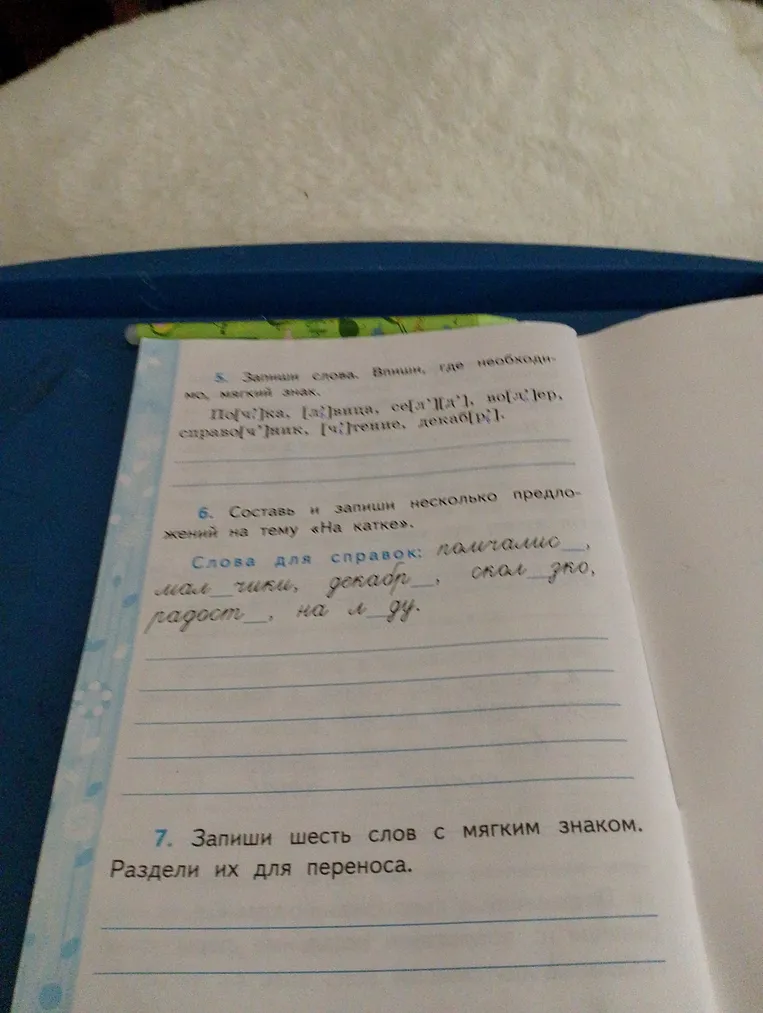 5. Запиши слова. Впиши, где необходи-
мо, мягкий знак.
По[ч’]ка, [л’]вица, се[л’][д’], во[л’]ер,
справо[ч’]ник, [ч’]тение, декаб[р’].
6. Составь и запиши несколько предло-
жений на тему «На катке».
Слова для справок: помчалис__,
мал__чики, декабр__, скол__зко,
радост__, на л__ду.
7. Запиши шесть слов с мягким знаком.
Раздели их для переноса.